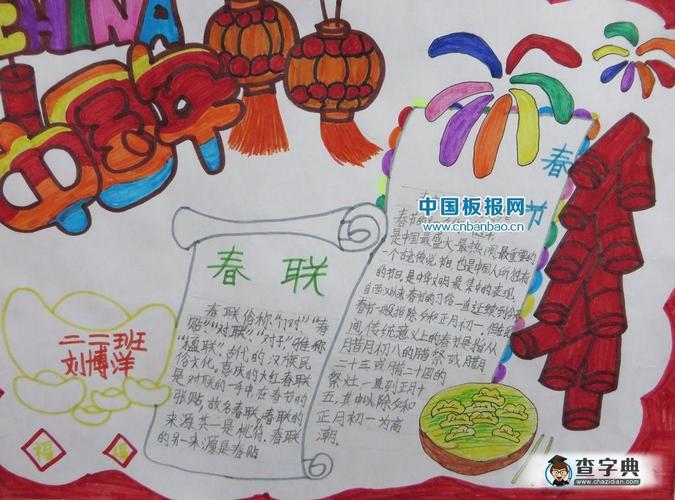 CHINA
中国年
二二班
刘博洋
福
春联
春联俗称"门对""春
贴""对联""对子"雅称
"楹联",古代的汉族民
俗文化。喜庆的大红春联
是对联的一种,在春节的
张贴,故名春联,春联的
来源其一是桃符,春联
的另一来源是春贴
春节
春节
是中国最盛大最热闹最重要的
一个古老传说节日,也是中国人所独有
的节日,是中华文明最集中的表现。
自西汉以来春节的习俗一直延续到今天
春节一般指除夕和正月初一,但在民
间传统意义上的春节是指从
腊月初八的腊祭或腊月
二十三或腊二十四的
祭灶一直到正月十
五,其中以除夕和
正月初一为高
潮。
中国板报网
www.cnbanbao.cn
查字典
www.chazidian.com